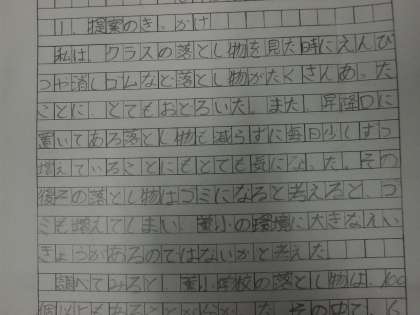 1. 提案のきっかけ
私は、クラスの落とし物を見た時にえんぴ
つや消しゴムなど落とし物がたくさんあった
ことに、とてもおどろいた。また、昇降口に
置いてある落とし物も減らずに毎日少しずつ
増えていることにもとても気になった。その
後その落とし物はゴミになると考えると、ゴ
ミも増えてしまい、小の環境に大きなえい
きょうがあるのではないかと考えた。
調べてみると、小学校の落とし物は、100
個以上もあることがわかった。その中で、